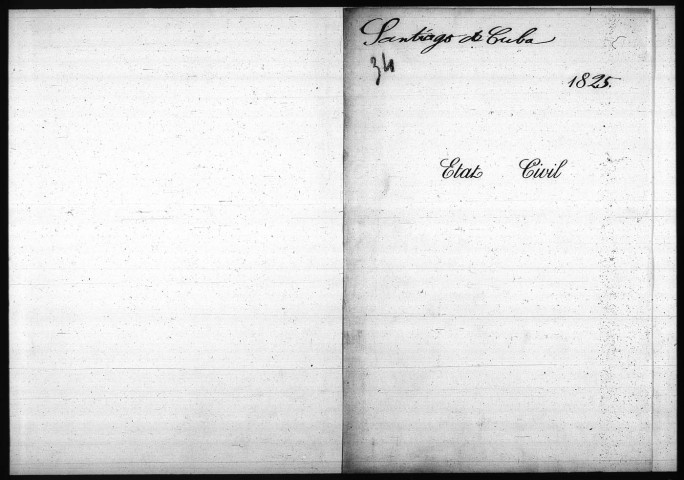 Santiago de Cuba
34
1825.
Etat Civil